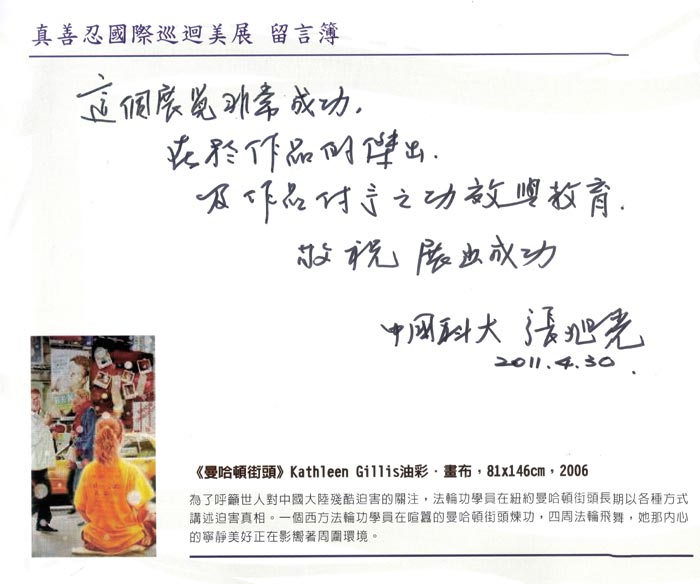 真善忍國際巡迴美展 留言簿
這個展覽非常成功,
在於作品的傑出.
及作品付言之功效與教育.
敬祝 展出成功
中國科大 張旭堯
2011.4.30.
《曼哈頓街頭》Kathleen Gillis油彩·畫布,81x146cm,2006
為了呼籲世人對中國大陸殘酷迫害的關注,法輪功學員在紐約曼哈頓街頭長期以各種方式
講述迫害真相。一個西方法輪功學員在喧囂的曼哈頓街頭煉功,四周法輪飛舞,她那內心
的寧靜美好正在影嚮著周圍環境。